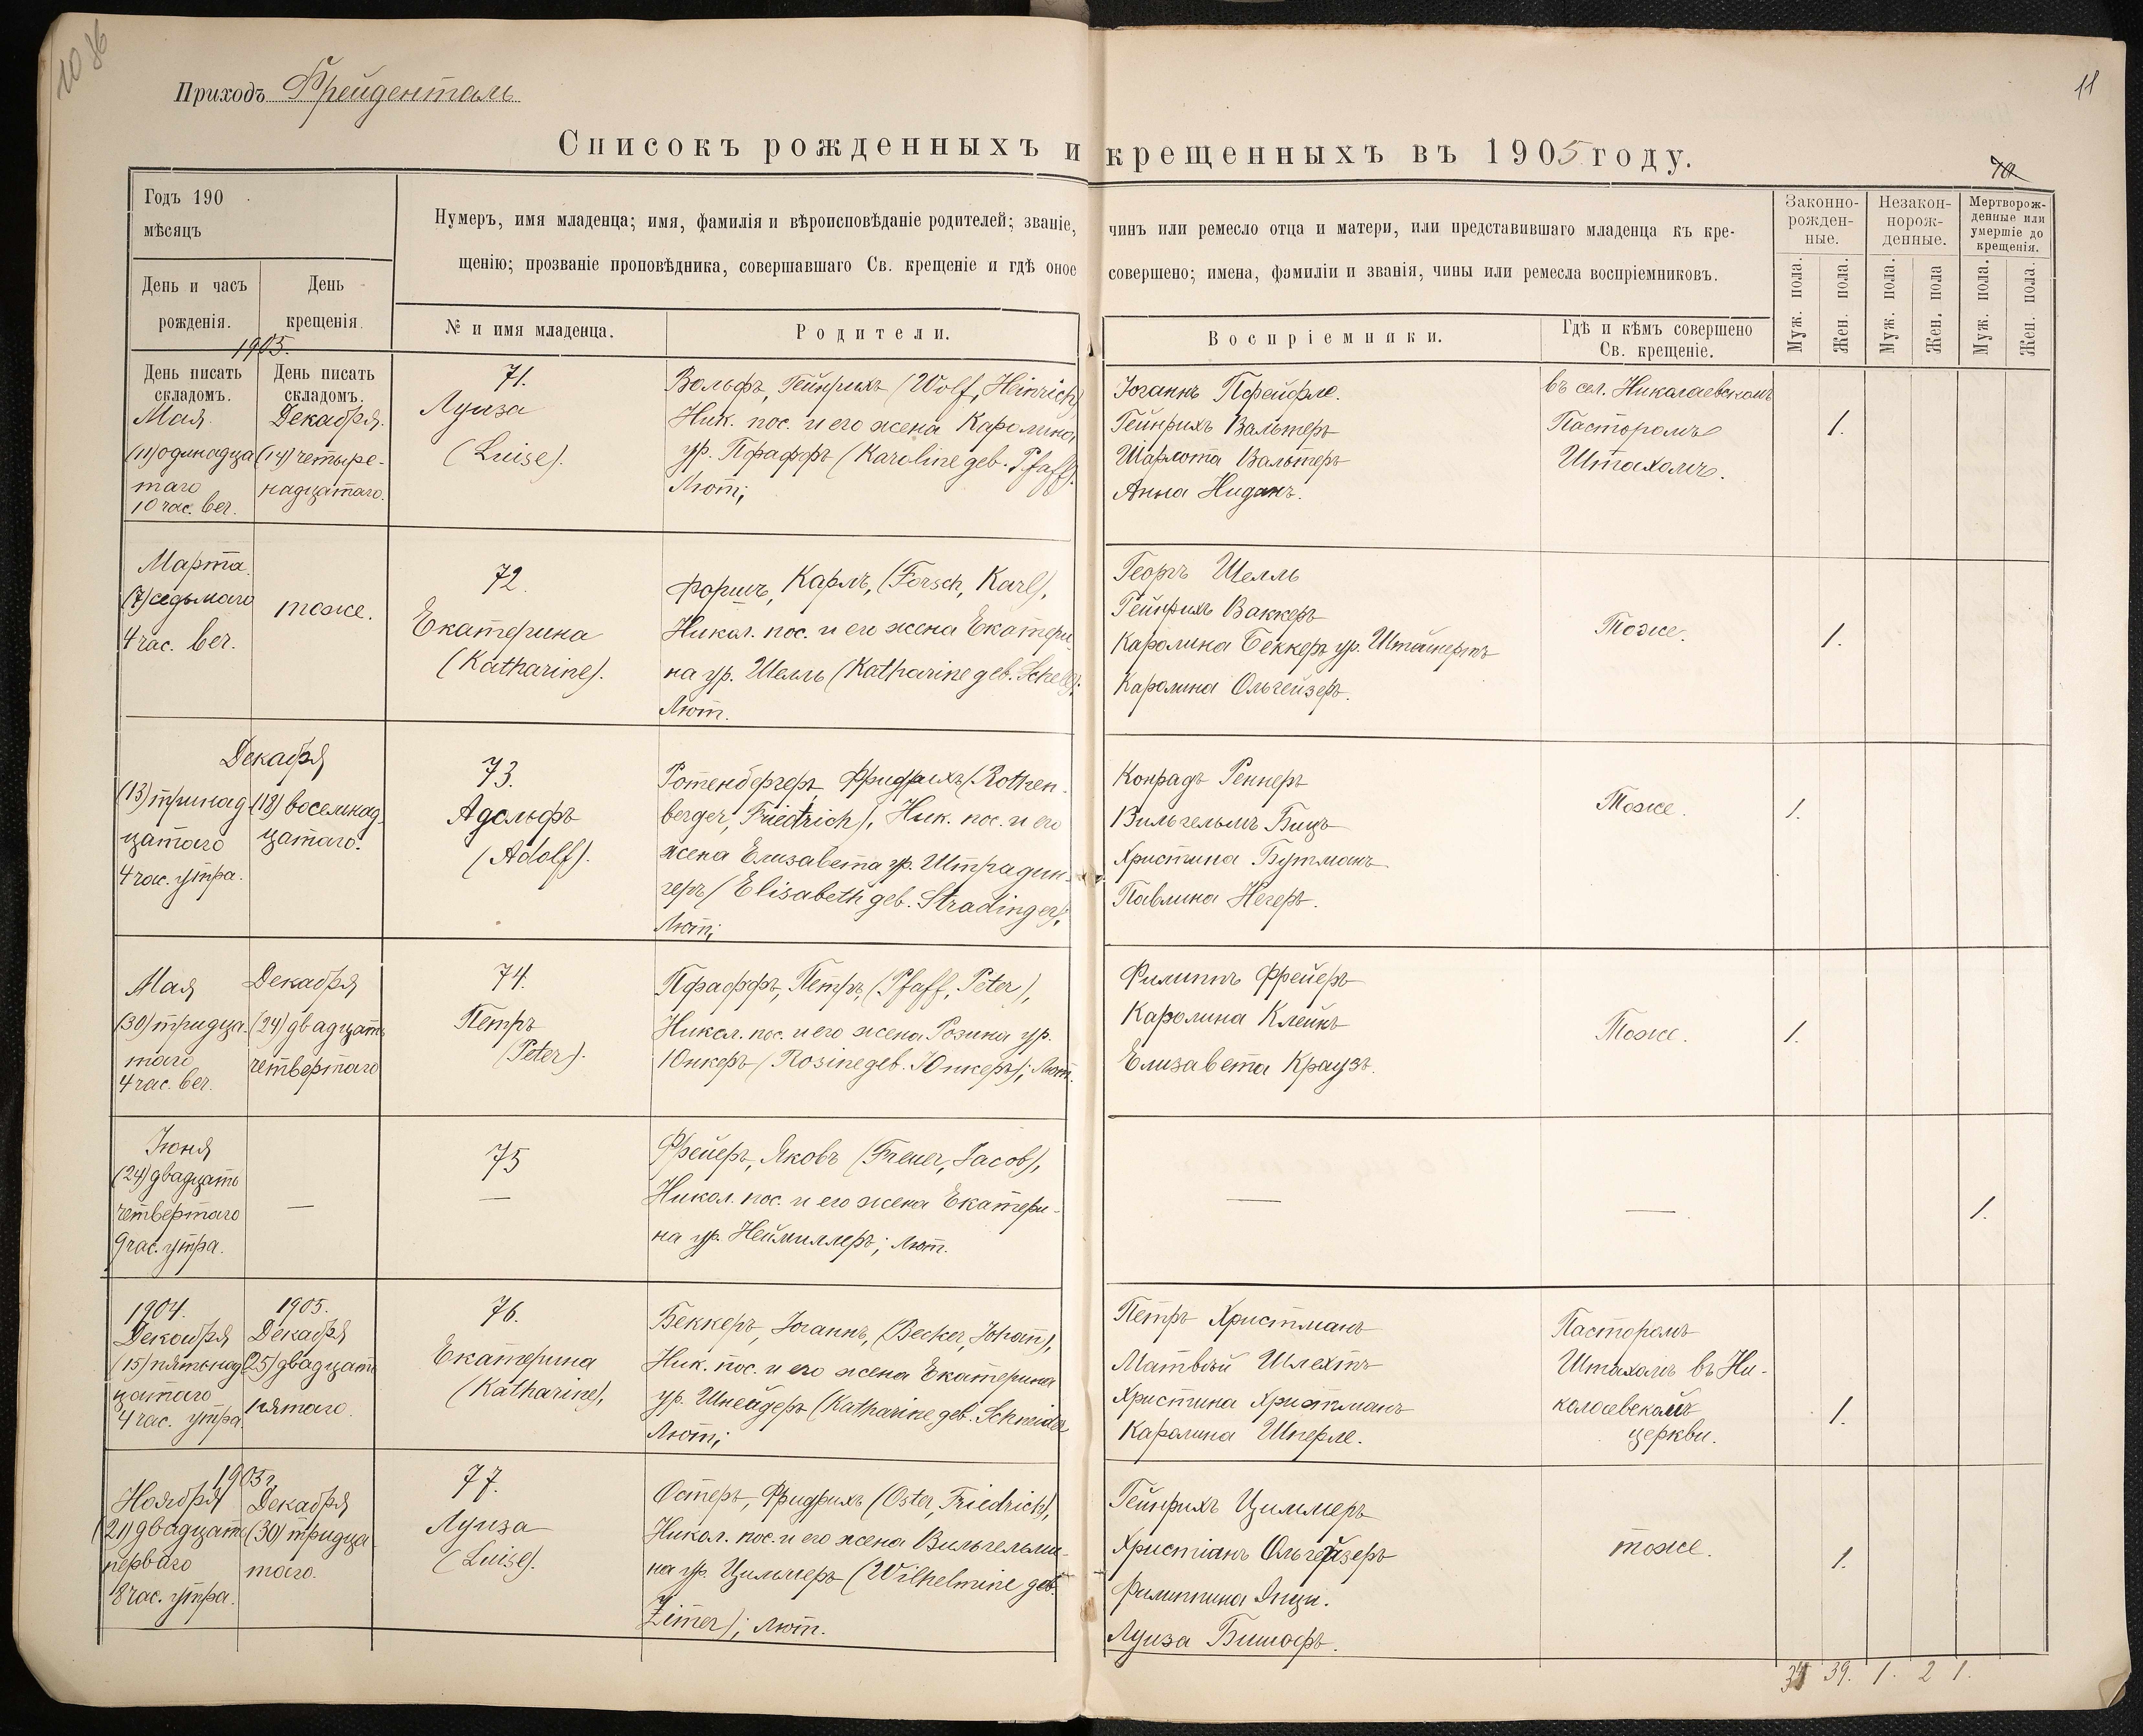 1086
11
Приходъ Фрейденталь
Списокъ рожденныхъ и крещенныхъ въ 1905 году.
70
Годъ 190
мѣсяцъ
День и часъ
рожденія.
День
крещенія.
1905.
День писать
складомъ.
День писать
складомъ.
Нумеръ, имя младенца; имя, фамилія и вѣроисповѣданіе родителей; званіе, чинъ или ремесло отца и матери, или представившаго младенца къ кре-
щенію; прозваніе проповѣдника, совершавшаго Св. крещеніе и гдѣ оное совершено; имена, фамиліи и званія, чины или ремесла воспріемниковъ.
№ и имя младенца.
Родители.
Воспріемники.
Гдѣ и кѣмъ совершено
Св. крещеніе.
Законно-
рожден-
ные.
Незакон-
норож-
денные.
Мертворож-
денные или
умершіе до
крещенія.
Муж. пола.
Жен. пола.
Муж. пола.
Жен. пола
Муж. пола.
Жен. пола.
Мая.
(11) одинадца
таго
10 час. веч.
Декабря.
(14) четыре-
надцатаго.
71.
Луиза
(Luise).
Вольфъ, Гейнрихъ (Wolf, Heinrich)
Ник. пос. и его жена Каролина
ур. Пфаффъ (Karoline geb. Pfaff).
Лют;
Іоганнъ Пфейфле.
Гейнрихъ Вальтеръ
Шарлота Вальтеръ
Анна Ниданъ.
въ сел. Николаевскомъ
Пасторомъ
Штахомъ.
1.
Марта.
(7) седьмаго
4 час. веч.
тоже.
72.
Екатерина
(Katharine).
Форшъ, Карлъ, (Forsch, Karl),
Никол. пос. и его жена Екатери-
на ур. Шелль (Katharine geb. Schell);
Лют.
Георгъ Шелль
Гейнрихъ Ваккеръ
Каролина Беккеръ ур. Штейнертъ
Каролина Ольгейзеръ.
Тоже.
1.
Декабря
(13) тринад-
цатаго
4 час. утра.
(18) восемнад-
цатаго.
73.
Адольфъ
(Adolf).
Ротенбергеръ, Фридрихъ (Rothen-
berger, Friedrich), Ник. пос. и его
жена Елизавета ур. Штрадин-
геръ (Elisabeth geb. Stradinger);
Лют;
Конрадъ Реннеръ
Вильгельмъ Бицъ
Христина Бутманъ
Павлина Негеръ.
Тоже.
1.
Мая
(30) тридца-
таго
4 час. веч.
Декабря
(24) двадцать
четвертаго
74.
Петръ
(Peter).
Пфаффъ, Петръ, (Pfaff, Peter),
Никол. пос. и его жена Розина ур.
Юнкеръ (Rosine geb. Юнкеръ); Лют.
Филиппъ Фрейеръ
Каролина Клейнъ
Елизавета Краузъ.
Тоже.
1.
Іюня
(24) двадцать
четвертаго
9 час. утра.
—
75
—
Фрейеръ, Яковъ (Freuer, Jacob),
Никол. пос. и его жена Екатери-
на ур. Неймиллеръ; Лют.
—
—
1.
1904.
Декабря
(15) пятьнад
цатаго
4 час. утра.
1905.
Декабря
(25) двадцать
пятаго.
76.
Екатерина
(Katharine),
Беккеръ, Іоганнъ, (Becker, Johan),
Ник. пос. и его жена Екатерина
ур. Шнейдеръ (Katharine geb. Schneider
Лют;
Петръ Христманъ
Матвѣй Шлехтъ
Христина Христманъ
Каролина Шперле.
Пасторомъ
Штахомъ въ Ни-
колаевской
церкви.
1.
1905 г.
Ноября
(21) двадцать
перваго
8 час. утра.
Декабря
(30) тридца
таго.
77.
Луиза
(Luise).
Остеръ, Фридрихъ (Oster, Friedrich),
Никол. пос. и его жена Вильгельми-
на ур. Циммеръ (Wilhelmine geb.
Zimer); Лют.
Гейнрихъ Циммеръ
Христіанъ Ольгейзеръ
Филиппина
Луиза Бишофъ.
тоже.
1.
39. 1. 2 1.